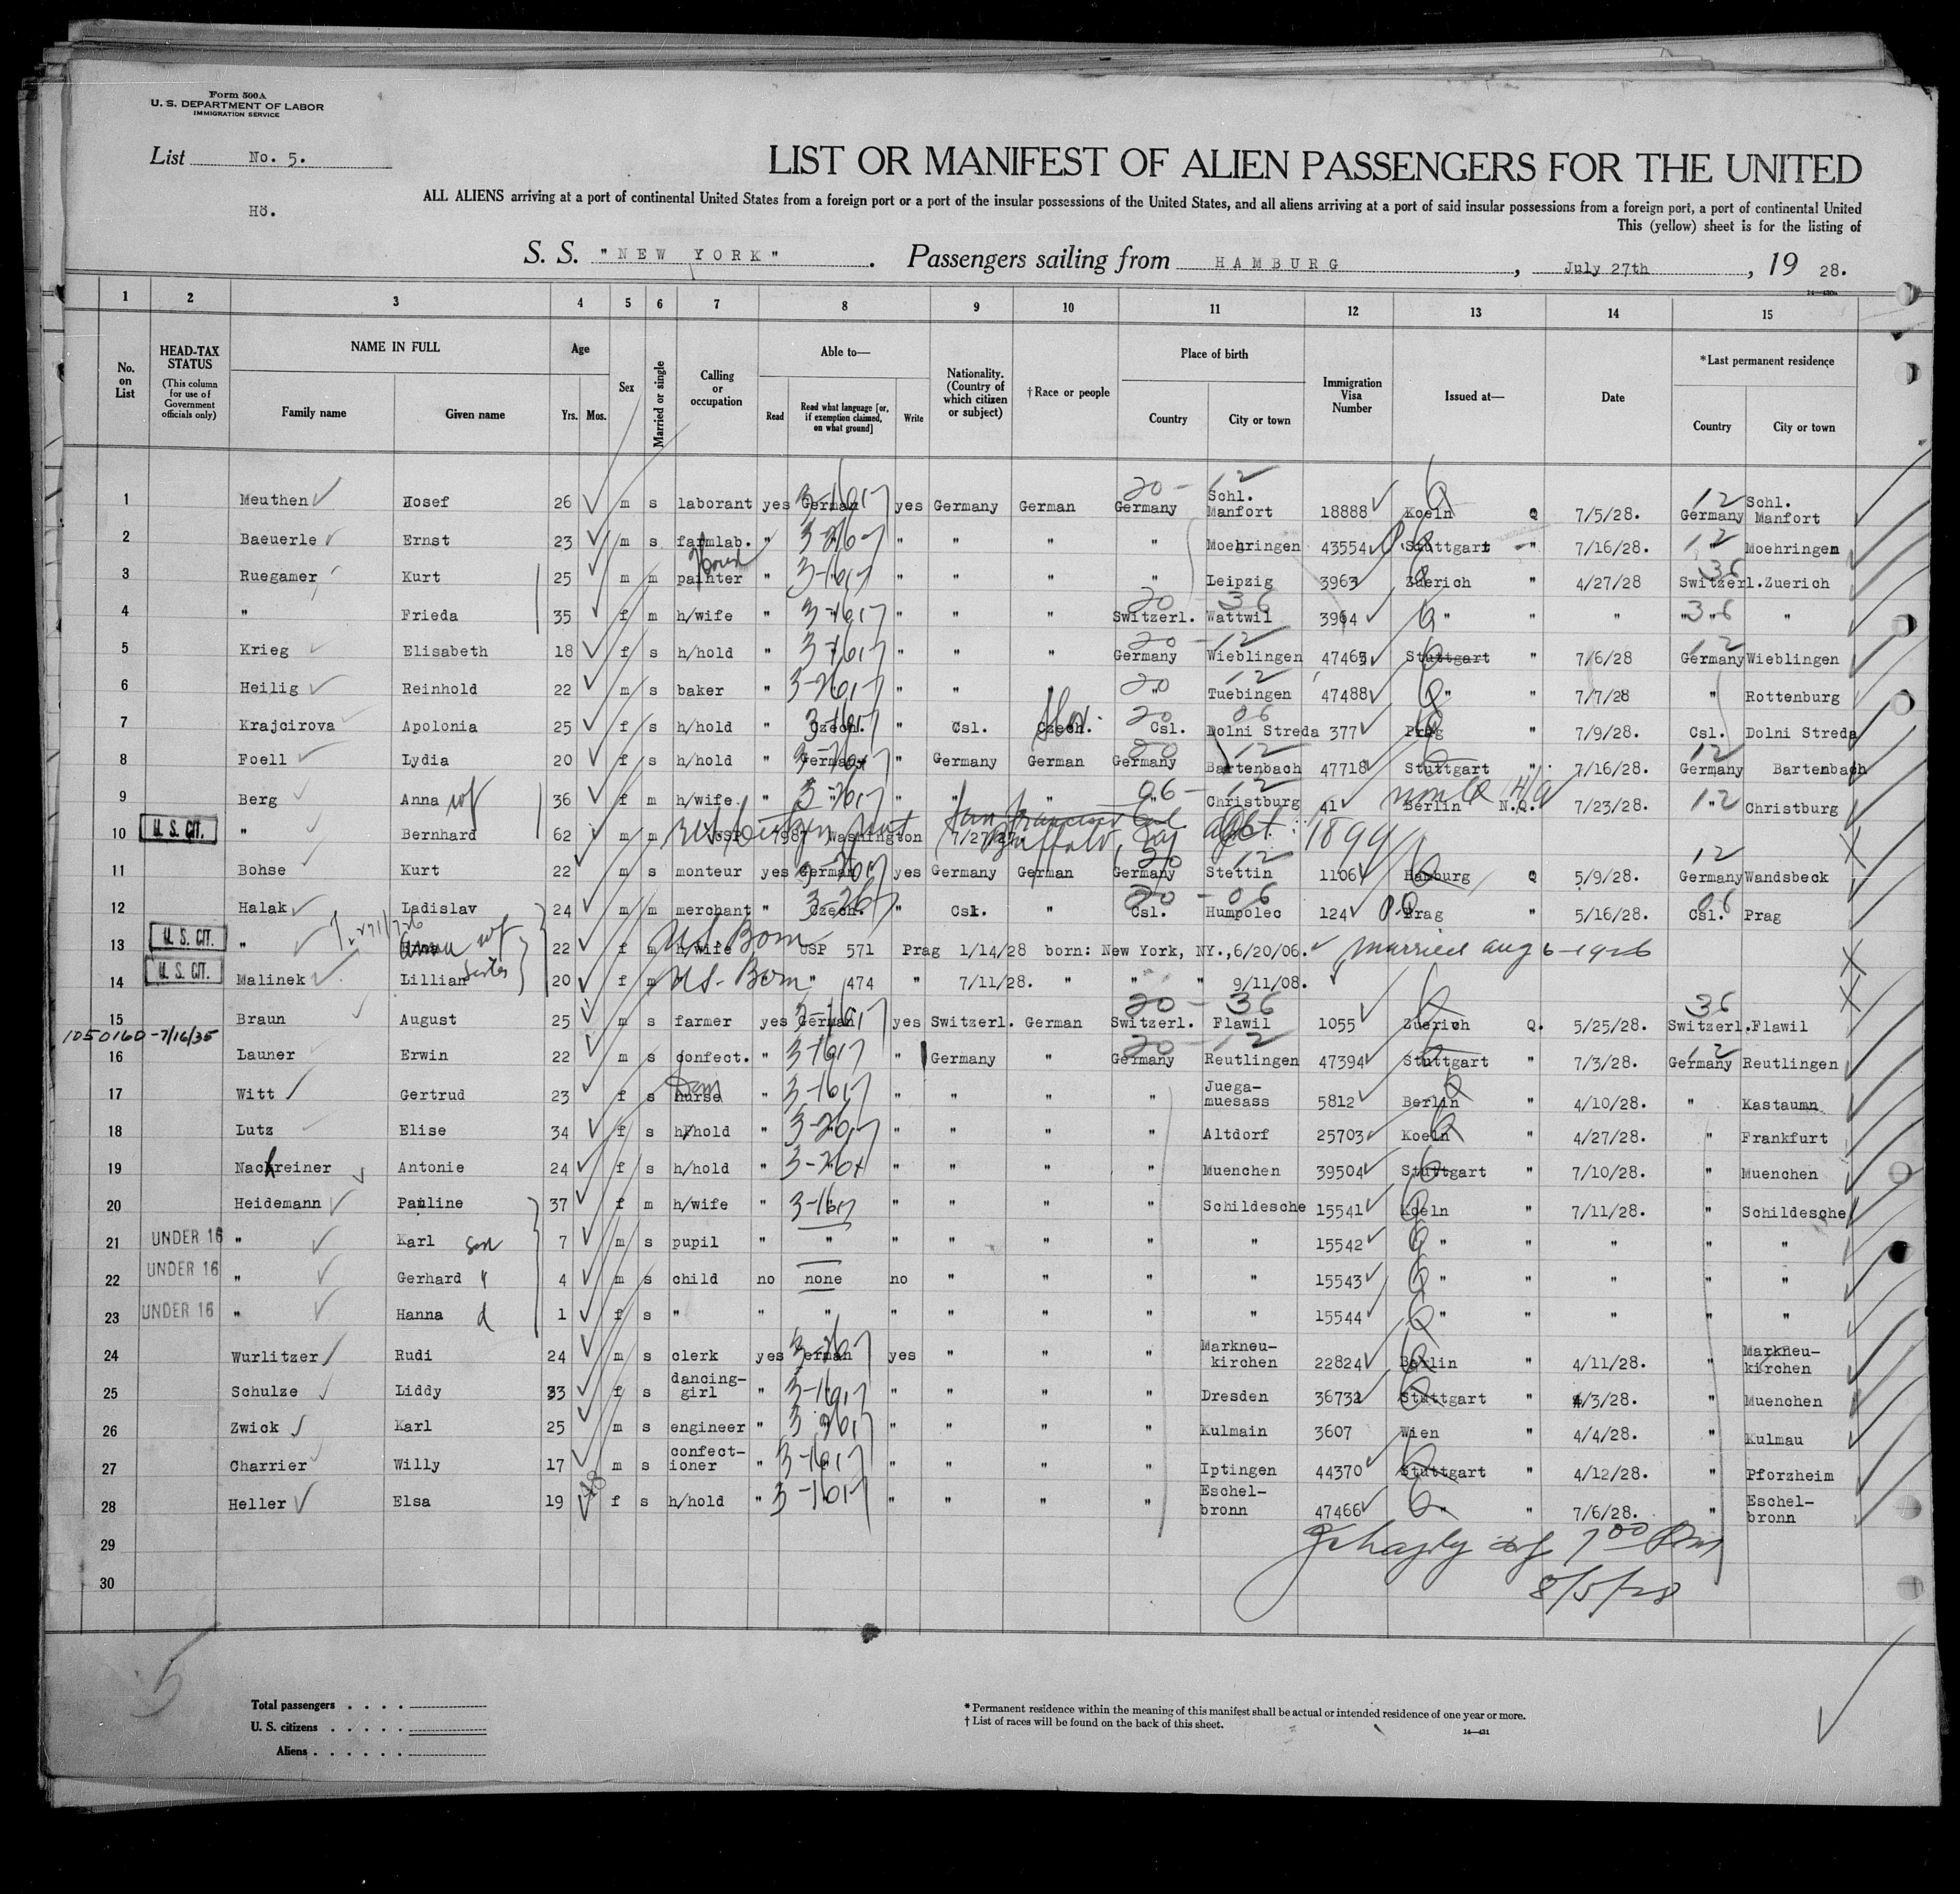 Form 500A
U. S. DEPARTMENT OF LABOR
IMMIGRATION SERVICE
List No. 5.
LIST OR MANIFEST OF ALIEN PASSENGERS FOR THE UNITED
Hö.
ALL ALIENS arriving at a port of continental United States from a foreign port or a port of the insular possessions of the United States, and all aliens arriving at a port of said insular possessions from a foreign port, a port of continental United
This (yellow) sheet is for the listing of
S. S. "NEW YORK". Passengers sailing from HAMBURG, July 27th, 19 28.
1 2 3 4 5 6 7 8 9 10 11 12 13 14 15
No. on List
HEAD-TAX STATUS (This column for use of Government officials only)
NAME IN FULL Family name Given name
Age Yrs. Mos.
Sex
Married or single
Calling or occupation
Able to— Read Read what language [or, if exemption claimed, on what ground] Write
Nationality. (Country of which citizen or subject)
†Race or people
Place of birth Country City or town
Immigration Visa Number
Issued at—
Date
*Last permanent residence Country City or town
1 Meuthen Josef 26 m s laborant yes German yes Germany German Germany Schl. Manfort 18888 Koeln Q 7/5/28. Germany Schl. Manfort
2 Baeuerle Ernst 23 m s farmlab. " " " " " " Moehringen 43554 Stuttgart " 7/16/28. " Moehringen
3 Ruegamer Kurt 25 m m painter " " " " " " Leipzig 3963 Zuerich " 4/27/28 Switzerl. Zuerich
4 " Frieda 35 f m h/wife " " " " " Switzerl. Wattwil 3964 " " " " "
5 Krieg Elisabeth 18 f s h/hold " " " " " Germany Wieblingen 47465 Stuttgart " 7/6/28 Germany Wieblingen
6 Heilig Reinhold 22 m s baker " " " " " " Tuebingen 47488 " " 7/7/28 " Rottenburg
7 Krajcirova Apolonia 25 f s h/hold " Czech. " Csl. Czech. Csl. Dolni Streda 377 Prag " 7/9/28. Csl. Dolni Streda
8 Foell Lydia 20 f s h/hold " German " Germany German Germany Bartenbach 47718 Stuttgart " 7/16/28. Germany Bartenbach
9 Berg Anna wf 36 f m h/wife " " " " " " Christburg 41 Berlin N.Q. 7/23/28. " Christburg
10 U. S. CIT. " Bernhard 62 m m USP 7987 Washington 7/27/27 San Francisco Cal Buffalo, NY 1899
11 Bohse Kurt 22 m s monteur yes German yes Germany German Germany Stettin 1106 Hamburg Q 5/9/28. Germany Wandsbeck
12 Halak Ladislav 24 m m merchant " Czech. " Csl. " Csl. Humpolec 124 Prag 5/16/28. Csl. Prag
13 U. S. CIT. " Anna wf 22 f m h/wife US Born USP 571 Prag 1/14/28 born: New York, NY.,6/20/06. Married Aug 6-1926
14 U. S. CIT. Malinek Lillian Sister 20 f m US-Born " 474 " 7/11/28. " " " 9/11/08.
15 Braun August 25 m s farmer yes German yes Switzerl. German Switzerl. Flawil 1055 Zuerich Q. 5/25/28. Switzerl. Flawil
1050160-7/16/35
16 Launer Erwin 22 m s confect. " " " Germany " Germany Reutlingen 47394 Stuttgart " 7/3/28. Germany Reutlingen
17 Witt Gertrud 23 f s nurse " " " " " " Juega-muesass 5812 Berlin " 4/10/28. " Kastaumn
18 Lutz Elise 34 f s h/hold " " " " " " Altdorf 25703 Koeln " 4/27/28. " Frankfurt
19 Nachreiner Antonie 24 f s h/hold " " " " " " Muenchen 39504 Stuttgart " 7/10/28. " Muenchen
20 Heidemann Pauline 37 f m h/wife " " " " " " Schildesche 15541 Koeln " 7/11/28. " Schildesche
21 UNDER 16 " Karl son 7 m s pupil " " " " " " " 15542 " " " " "
22 UNDER 16 " Gerhard " 4 m s child no none no " " " " 15543 " " " " "
23 UNDER 16 " Hanna d 1 f s " " " " " " " " 15544 " " " " "
24 Wurlitzer Rudi 24 m s clerk yes German yes " " " Markneu-kirchen 22824 Berlin " 4/11/28. " Markneu-kirchen
25 Schulze Liddy 33 f s dancing-girl " " " " " " Dresden 36732 Stuttgart " 4/3/28. " Muenchen
26 Zwick Karl 25 m s engineer " " " " " " Kulmain 3607 Wien " 4/4/28. " Kulmau
27 Charrier Willy 17 18 m s confect-ioner " " " " " " Iptingen 44370 Stuttgart " 4/12/28. " Pforzheim
28 Heller Elsa 19 f s h/hold " " " " " " Eschel-bronn 47466 " " 7/6/28. " Eschel-bronn
29
30
8/5/28
5
Total passengers
U. S. citizens
Aliens
* Permanent residence within the meaning of this manifest shall be actual or intended residence of one year or more.
† List of races will be found on the back of this sheet.
14—431